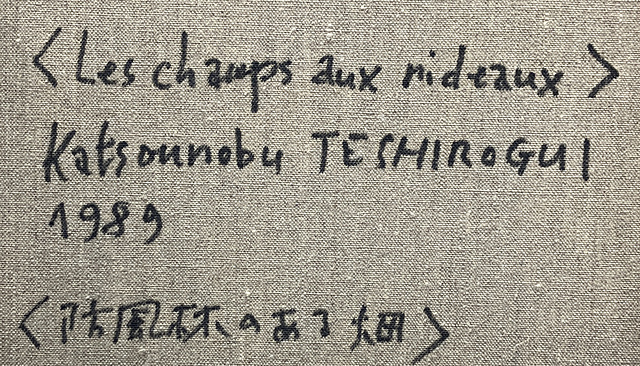 <Les champs aux rideaux>
Katsounobu TESHIROGUI
1989
<防風林のある畑>